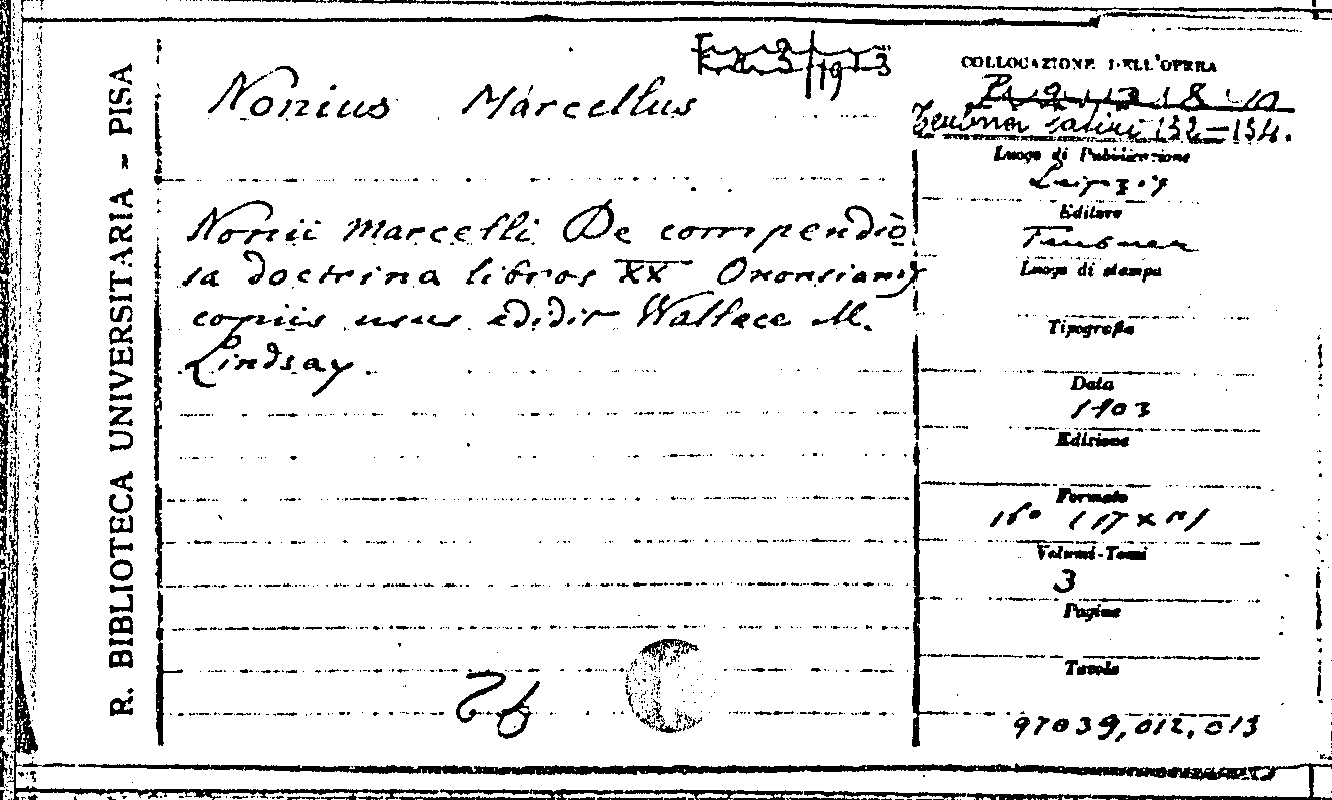 R. BIBLIOTECA UNIVERSITARIA - PISA
Nonius Marcellus
Nonii Marcelli De compendiò
sa doctrina libros XX Ononsianis
copiis usus edidit Wallace M.
Lindsay.
COLLOCAZIONE DELL'OPERA
Teubner latini 132-134.
Luogo di Pubblicazione
Leipzig
Editore
Teubner
Luogo di stampa
Tipografia
Data
1903
Edizione
Formato
16°
Volumi-Tomi
3
Pagine
Tavole
97039,012,013